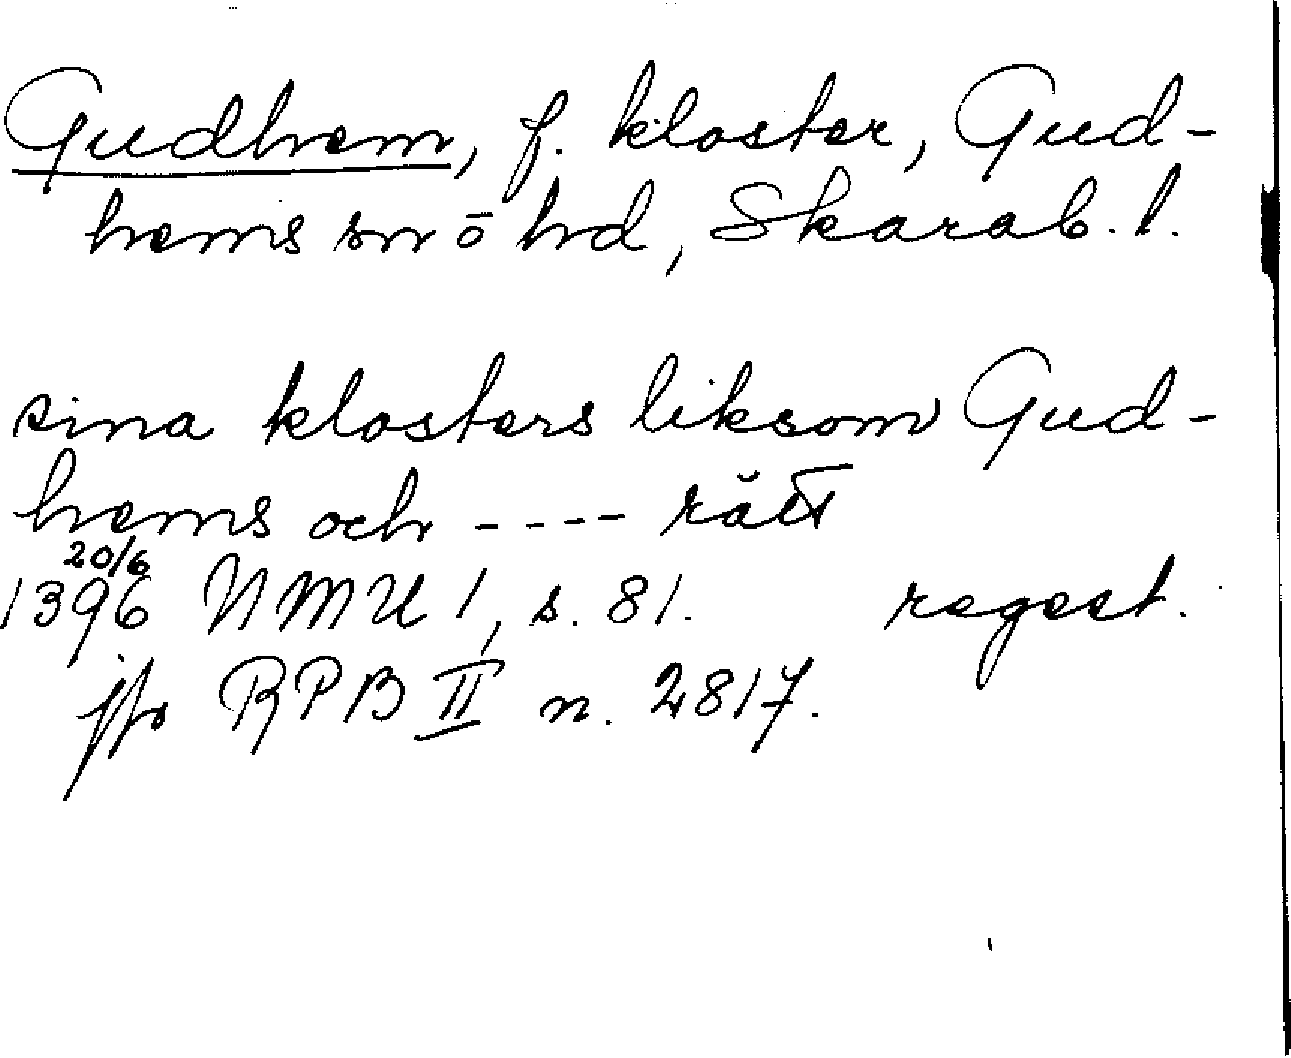 Gudhem, f. kloster, Gud-
hems sn ō hd, Skarab. l.
sina klosters liksom Gud-
hems och ---- rätt
20/6
1396 NMU 1, s. 81. regest.
jfr RPB II n. 2817.